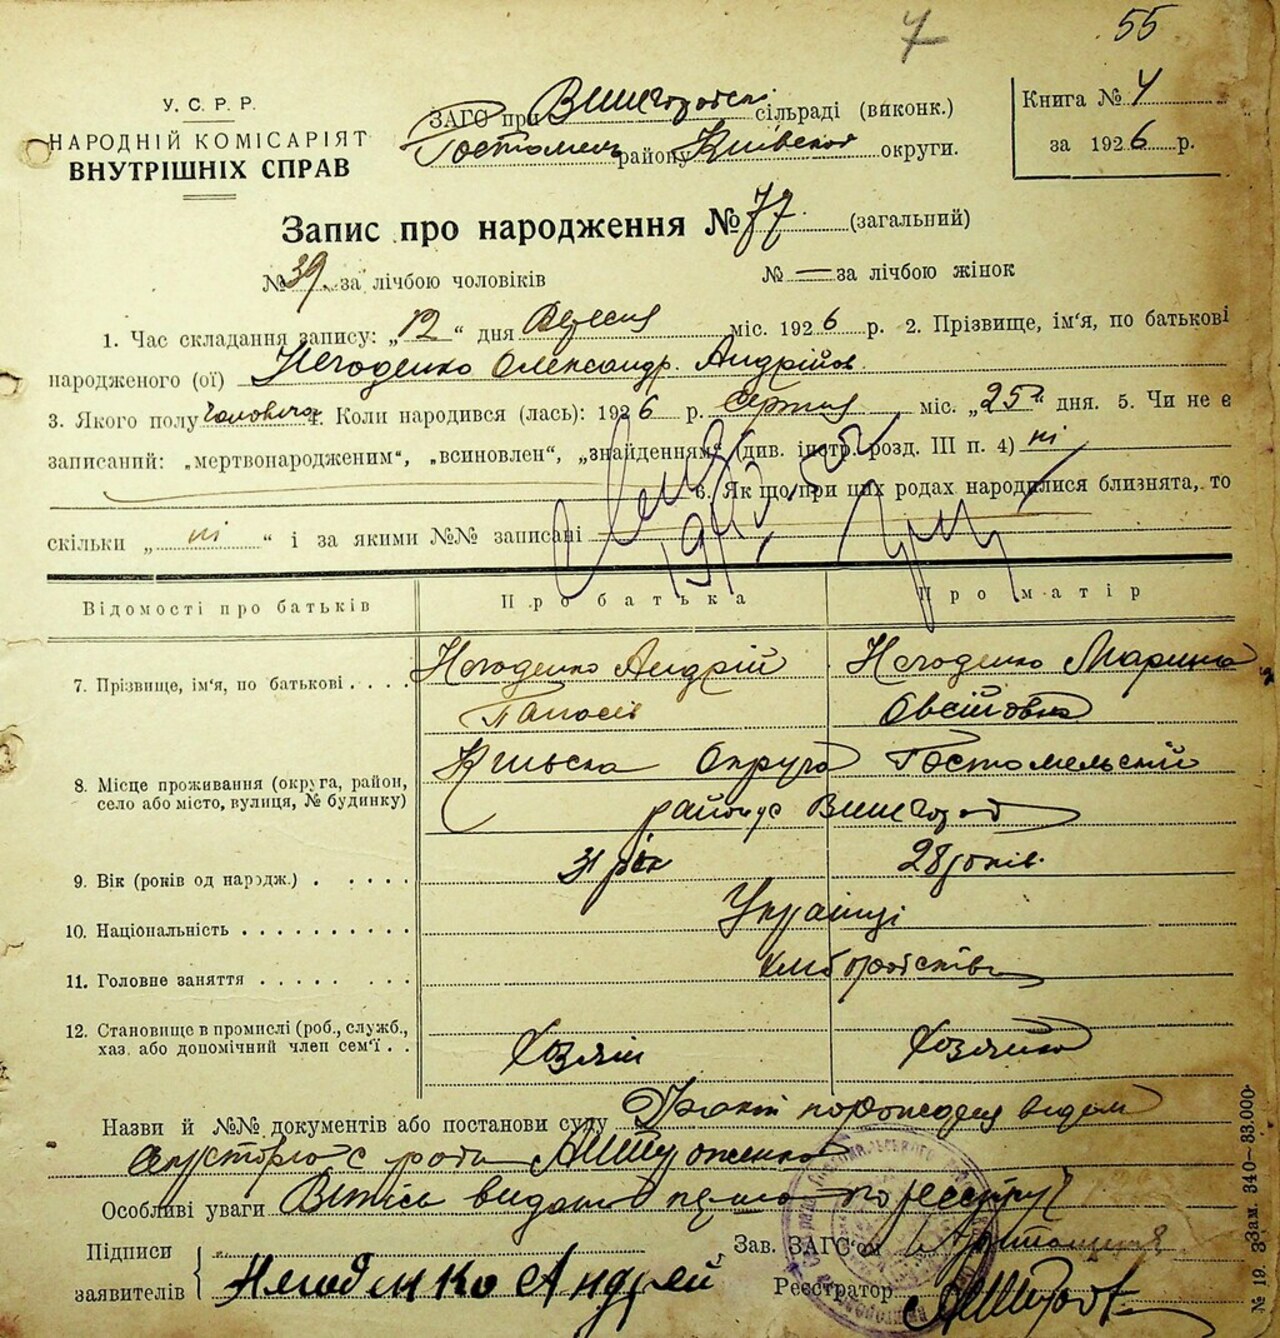 7 55
У. С. Р. Р.
НАРОДНІЙ КОМІСАРІЯТ
ВНУТРІШНІХ СПРАВ
ЗАГС при Вишгородські сільраді (виконк.)
Гостомель району Київской округи.
Книга № 4
за 1926 р.
Запис про народження № 77. (загальний)
№ 39. за лічбою чоловіків № — за лічбою жінок
1. Час складання запису: „12“ дня Вересня міс. 1926 р. 2. Прізвище, ім'я, по батькові
народженого (ої) Негоденко Олександр. Андрійов.
3. Якого полу Чоловічог 4. Коли народився (лась): 1926 р. Серпня міс. „25“ дня. 5. Чи не є
записаний: „мертвонародженим“, „всиновлен“, „знайденням“ (див. інстр. розд. III п. 4) ні
6. Як що при цих родах народилися близнята, то
скільки „ні“ і за якими №№ записані
Відомості про батьків Про батька Про матір
7. Прізвище, ім'я, по батькові . . . . Негоденко Андрій Негоденко Марина
Панасів Овсіїовна
8. Місце проживання (округа, район, Київска Округа Гостомельский
село або місто, вулиця, № будинку) район с Вишгород
9. Вік (років од народж.) . . . . . 31 рік 28 років.
10. Національність . . . . . . . . . . Українці
11. Головне заняття . . . . . . . . Хліборобство
12. Становище в промислі (роб., служб.,
хаз. або допомічний член сем'ї . . Хозяін Хозяйка
Назви й №№ документів або постанови суду
Особливі уваги Витісь видано
Підписи
заявителів Негоденко Андрей
Зав. ЗАГС'ом
Реєстратор
№ 19. Зам. 340—33.000